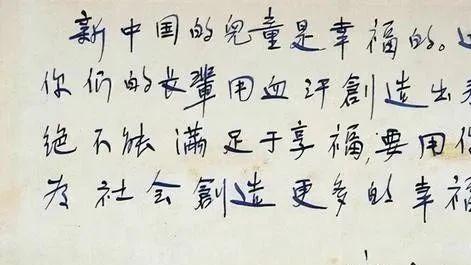 新中国的兒童是幸福的。这
你们的长輩用血汗創造出来
绝不能满足于享福,要用你
为社会創造更多的幸福